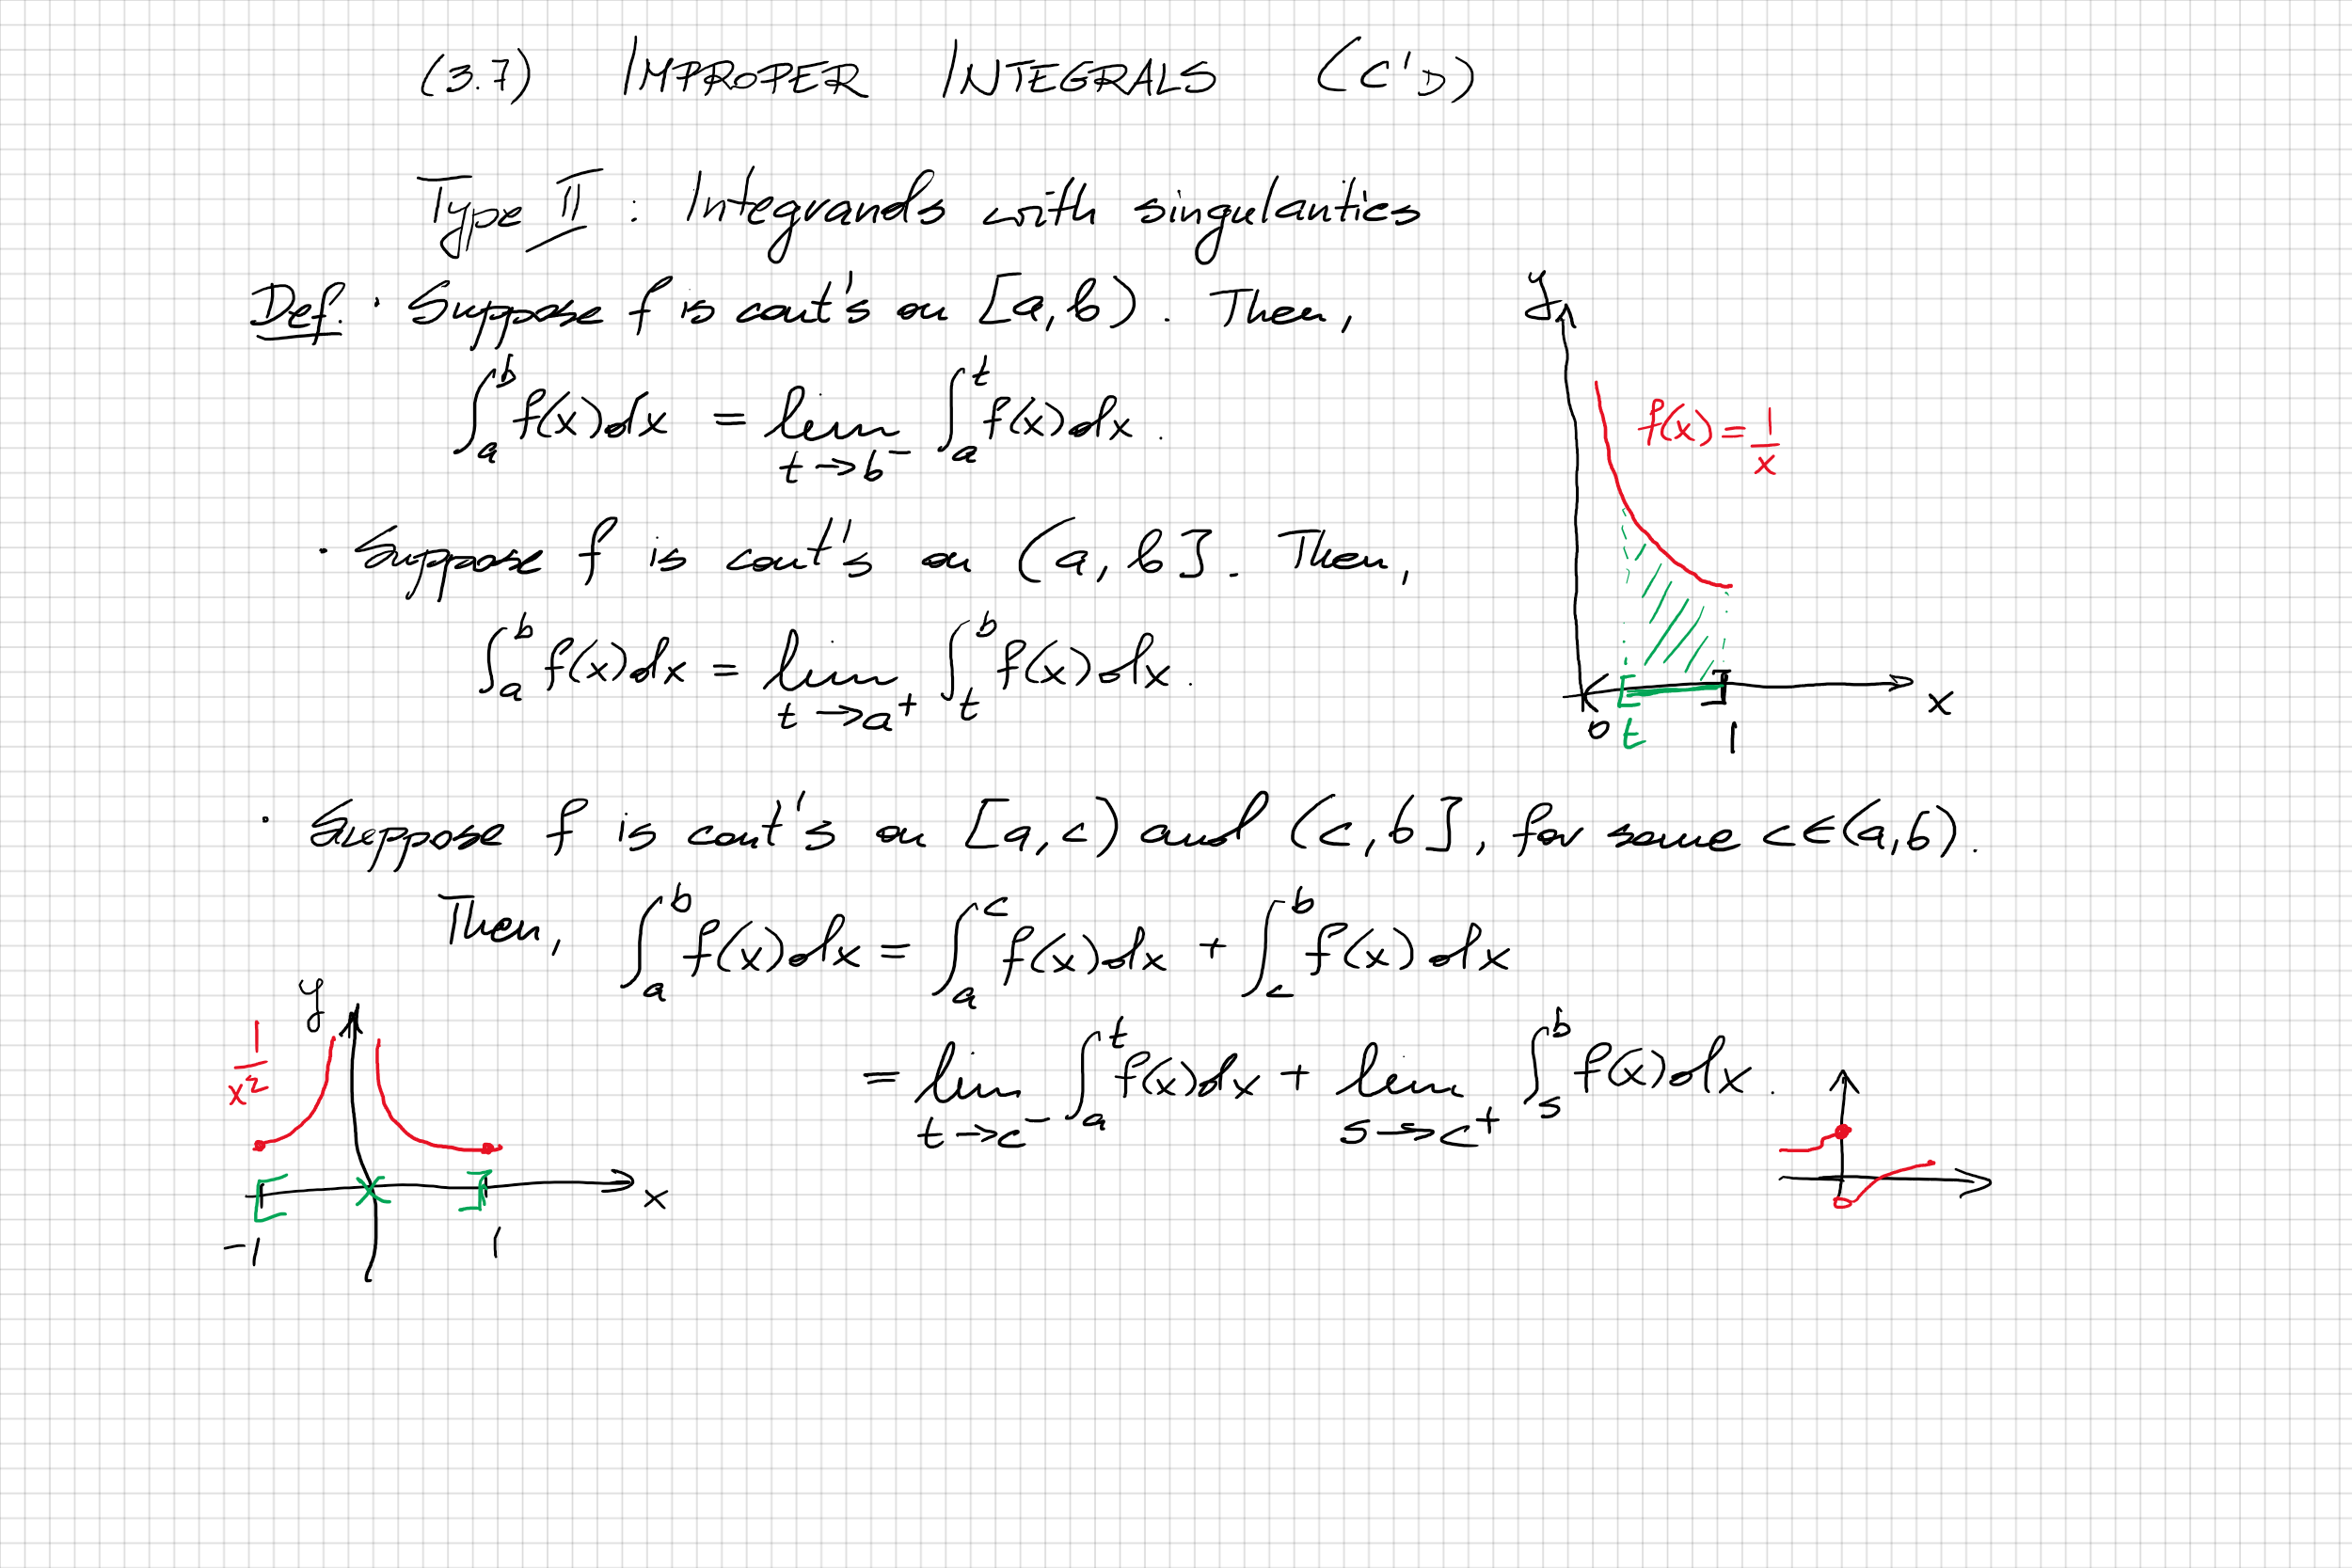 (3.7) IMPROPER INTEGRALS (C'D)
Type II : Integrands with singularities
Def. · Suppose f is cont's on [a, b). Then,
∫_a^b f(x)dx = lim_{t→b⁻} ∫_a^t f(x)dx.
y
f(x) = 1/x
0 t 1 x
· Suppose f is cont's on (a, b]. Then,
∫_a^b f(x)dx = lim_{t→a⁺} ∫_t^b f(x)dx.
· Suppose f is cont's on [a, c) and (c, b], for some c∈(a, b).
Then, ∫_a^b f(x)dx = ∫_a^c f(x)dx + ∫_c^b f(x)dx
= lim_{t→c⁻} ∫_a^t f(x)dx + lim_{s→c⁺} ∫_s^b f(x)dx.
y
1/x²
x
-1 1